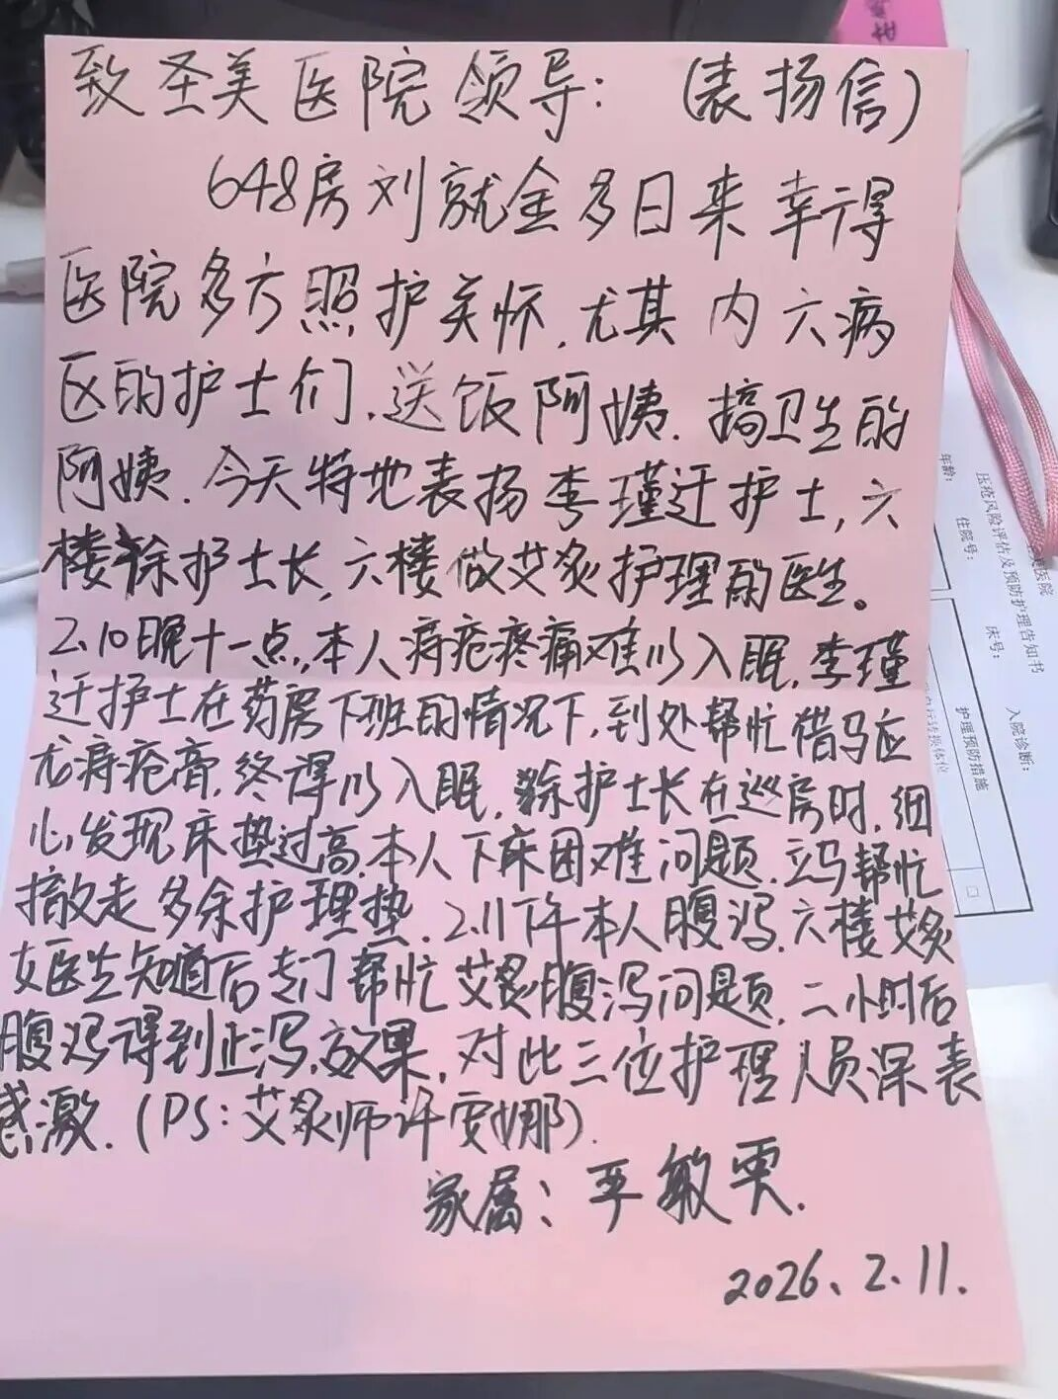 致圣美医院领导：（表扬信）
648房刘就金多日来幸得
医院多方照护关怀.尤其内六病
区的护士们.送饭阿姨.搞卫生的
阿姨.今天特地表扬李瑾迁护士,六
楼徐护士长,六楼做艾炙护理的医生。
2.10日晚十一点,本人痔疮疼痛难以入眠.李瑾
迁护士在药房下班的情况下,到处帮忙借马应
龙痔疮膏.终得以入眠.徐护士长在巡房时.细
心发现床垫过高.本人下床困难问题.立马帮忙
撤走多余护理垫.2.11下午本人腹泻.六楼艾炙
女医生知道后专门帮忙艾炙腹泻问题.二小时后
腹泻得到止泻效果.对此三位护理人员深表
感激.(PS:艾炙师许安娜).
家属：平敏雯.
2026、2.11.
医院
压疮风险评估及预防护理告知书
年龄:
住院号:
床号:
入院诊断:
护理预防措施